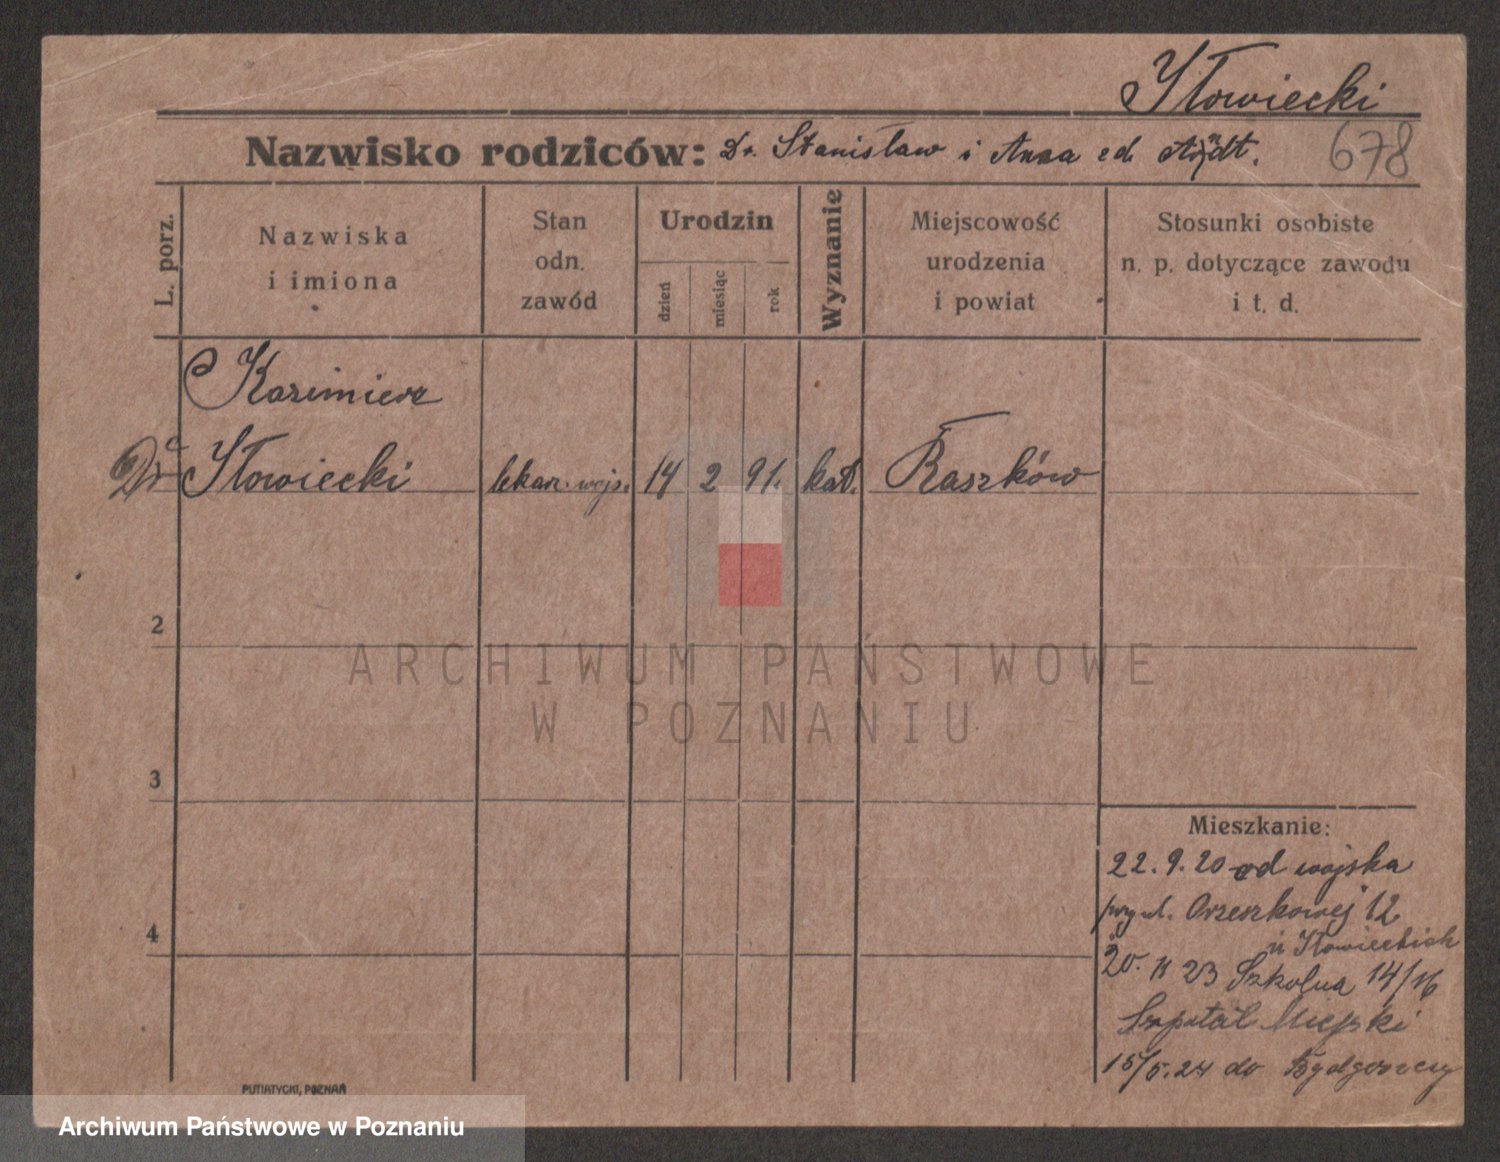 Iłowiecki
Nazwisko rodziców: Dr. Stanisław i Anna
678
L. porz.
Nazwiska
i imiona
Stan
odn.
zawód
Urodzin
dzień
miesiąc
rok
Wyznanie
Miejscowość
urodzenia
i powiat
Stosunki osobiste
n. p. dotyczące zawodu
i t. d.
Kazimierz
Dr Iłowiecki lekarz. wojs. 14 2 91. kat. Raszków
2
3
4
ARCHIWUM PAŃSTWOWE
W POZNANIU
Mieszkanie:
22.9.20 od wojska
przy ul. Orzeszkowej 12
u Iłowieckich
20. 11 23 Szkolna 14/16
Szpital Miejski
15/5.24 do Bydgoszczy
PUTIATYCKI, POZNAŃ
Archiwum Państwowe w Poznaniu